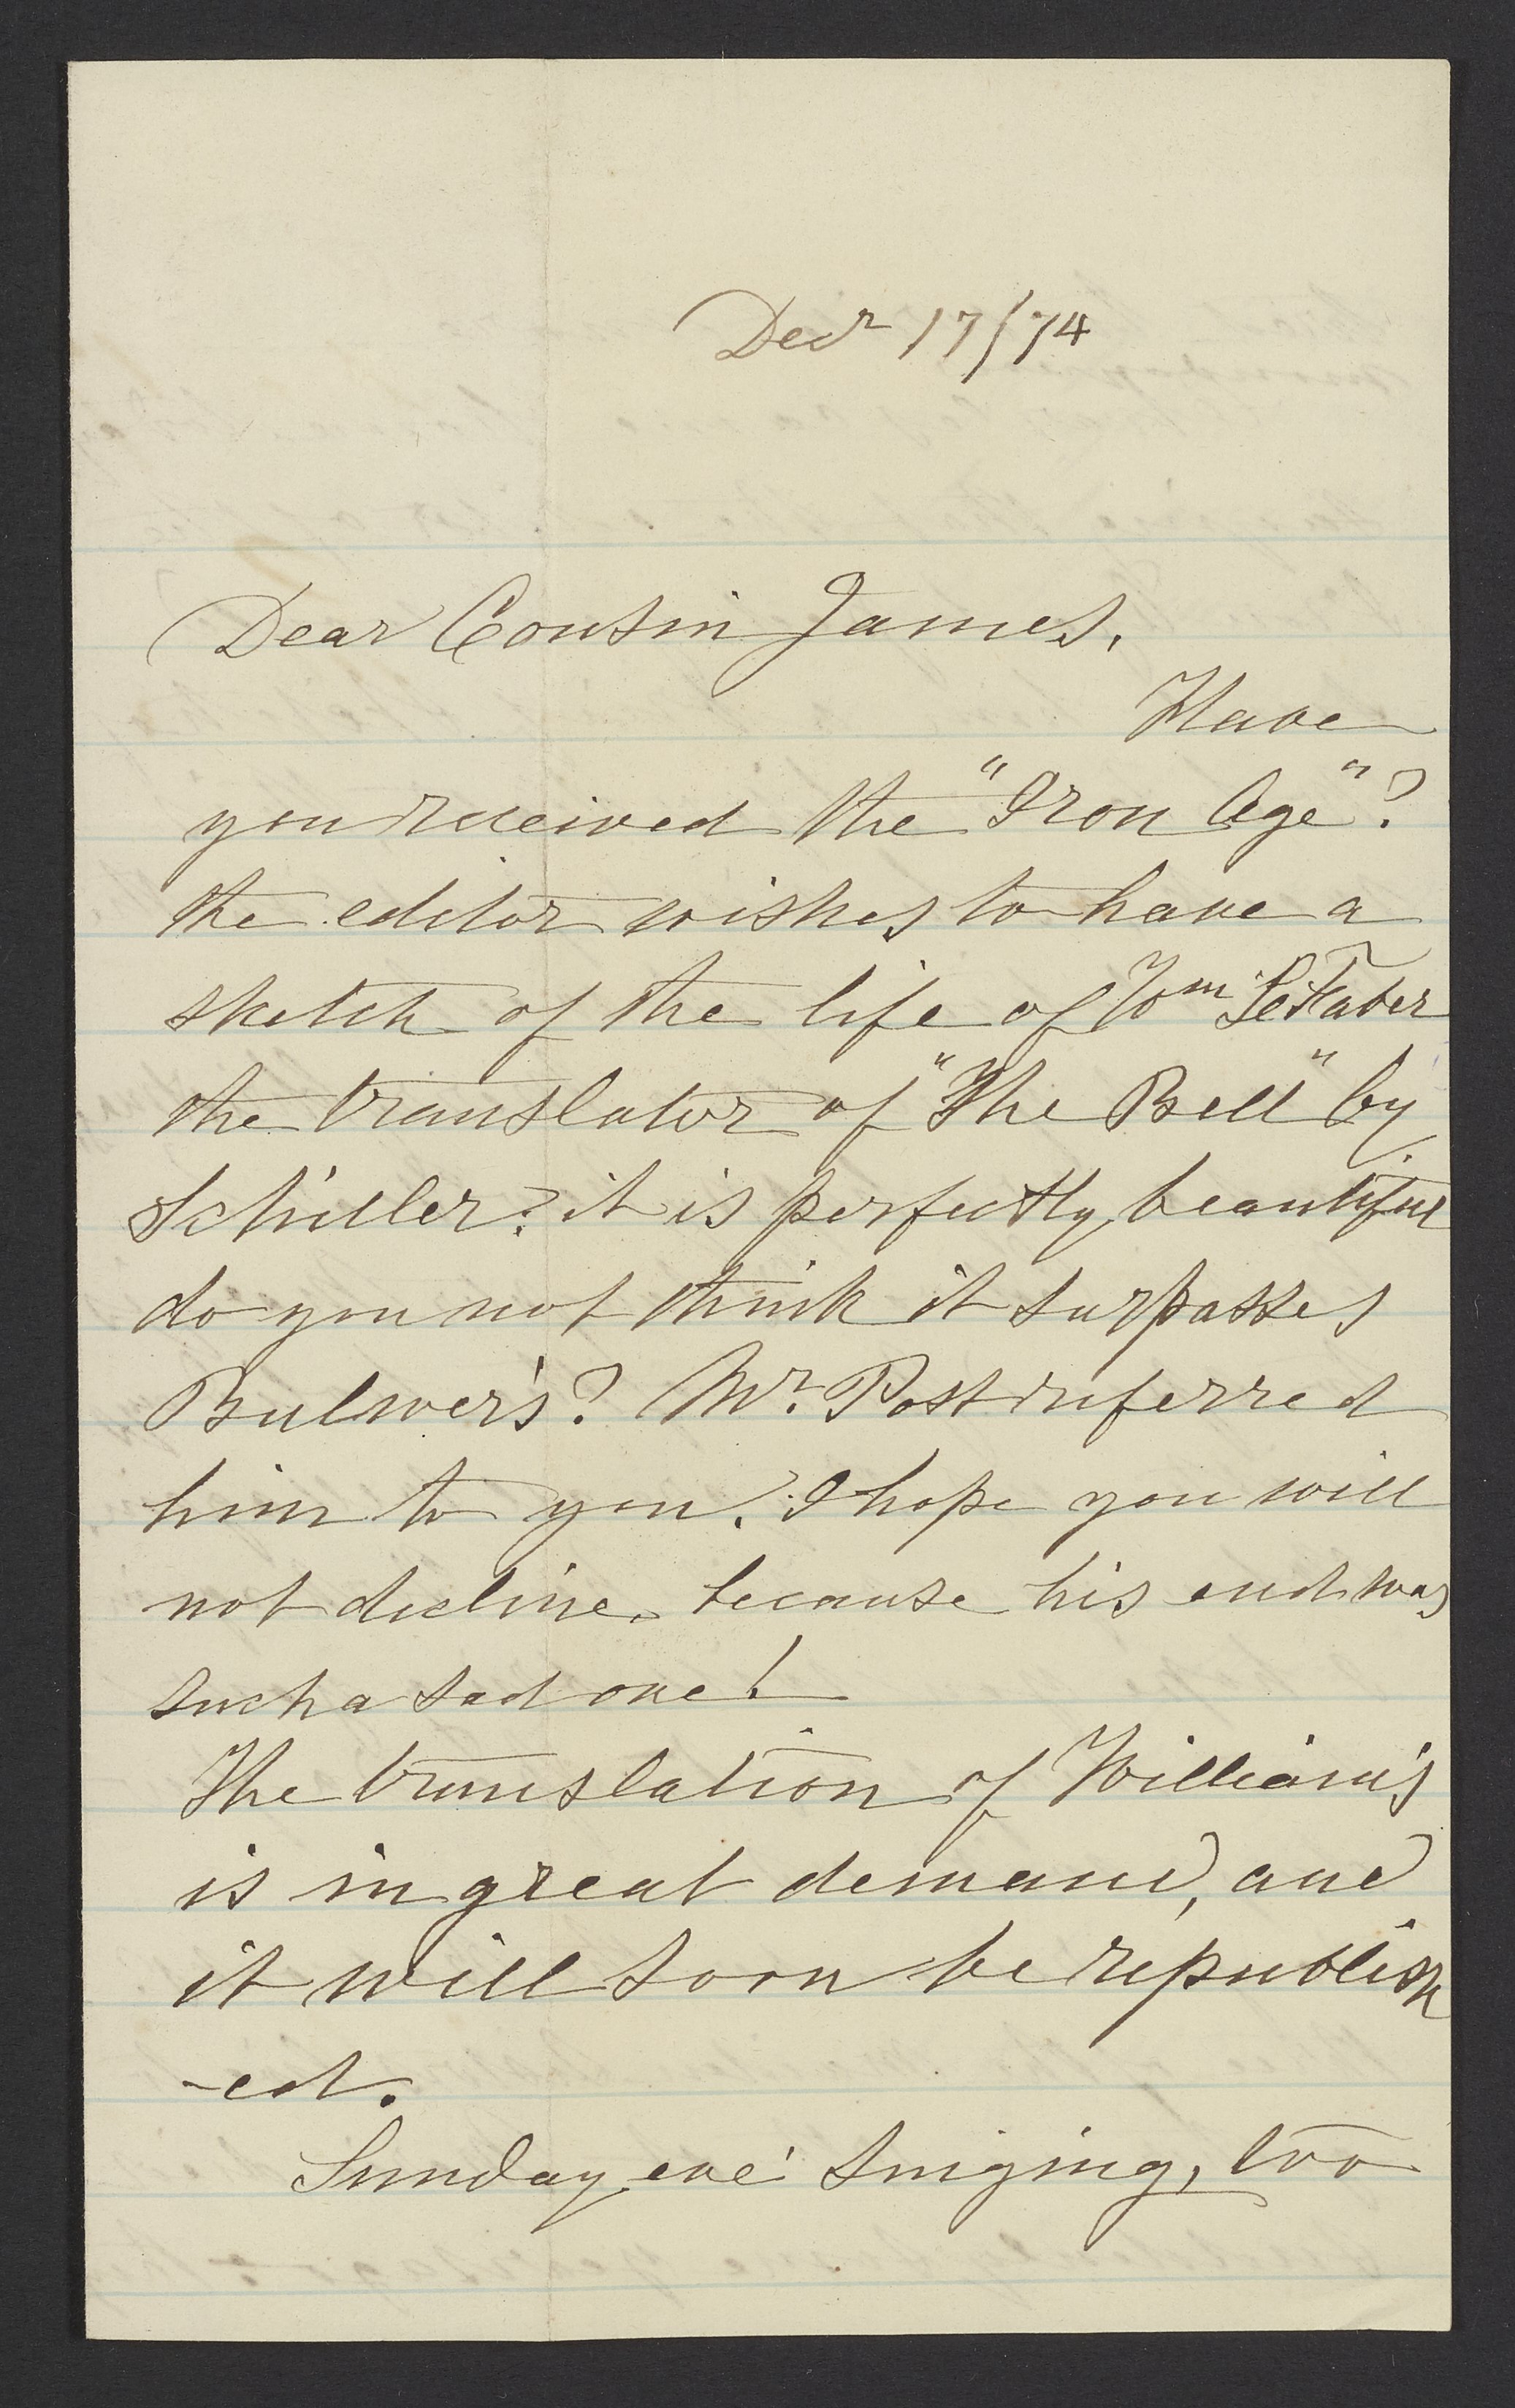 Decr 17/74
Dear Cousin James,
Have
you received the "Iron Age"?
the editor wishes to have a
sketch of the life of Wm LeTaber
the translator of "The Bell" by
Schiller? it is perfectly beautiful
do you not think it surpasses
Bulwer's? Mr. Post referred
him to you. I hope you will
not decline, because his end was
such a sad one!
The translation of William's
is in great demand, and
it will soon be republish
-ed.
Sunday eve' singing, too